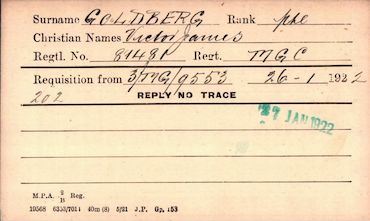 Surname GOLDBERG Rank pte
Christian Names Victor James
Regtl. No. 81481 Regt. MGC
Requisition from 3/MG/9553 26-1 1922
202 REPLY NO TRACE
27 JAN 1922
M.P.A. 2/B Reg.
19568 6353/7011 40m (8) 5/21 J.P. Gp. 153